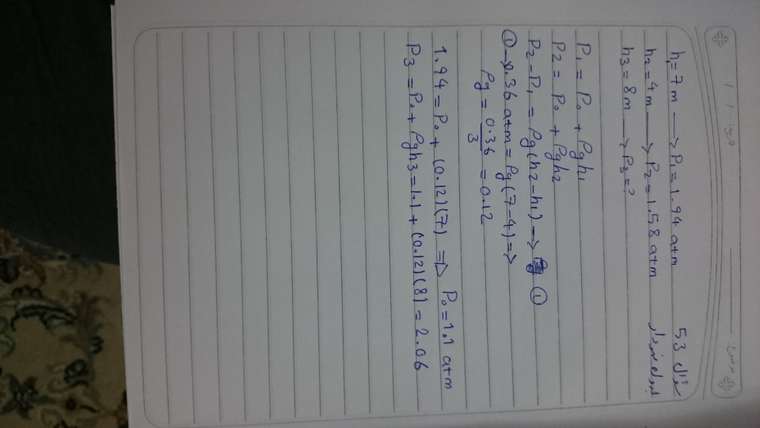 سوال 53
h₁=7m → P₁=1.94 atm
h₂=4m → P₂=1.58 atm
h₃=8m → P₃=?
P₁=P₀+ρgh₁
P₂=P₀+ρgh₂
P₂-P₁=ρg(h₂-h₁) → ①
① → 0.36 atm=ρg(7-4) ⇒
ρg=0.36/3=0.12
1.94=P₀+(0.12)(7) ⇒ P₀=1.1 atm
P₃=P₀+ρgh₃=1.1+(0.12)(8)=2.06